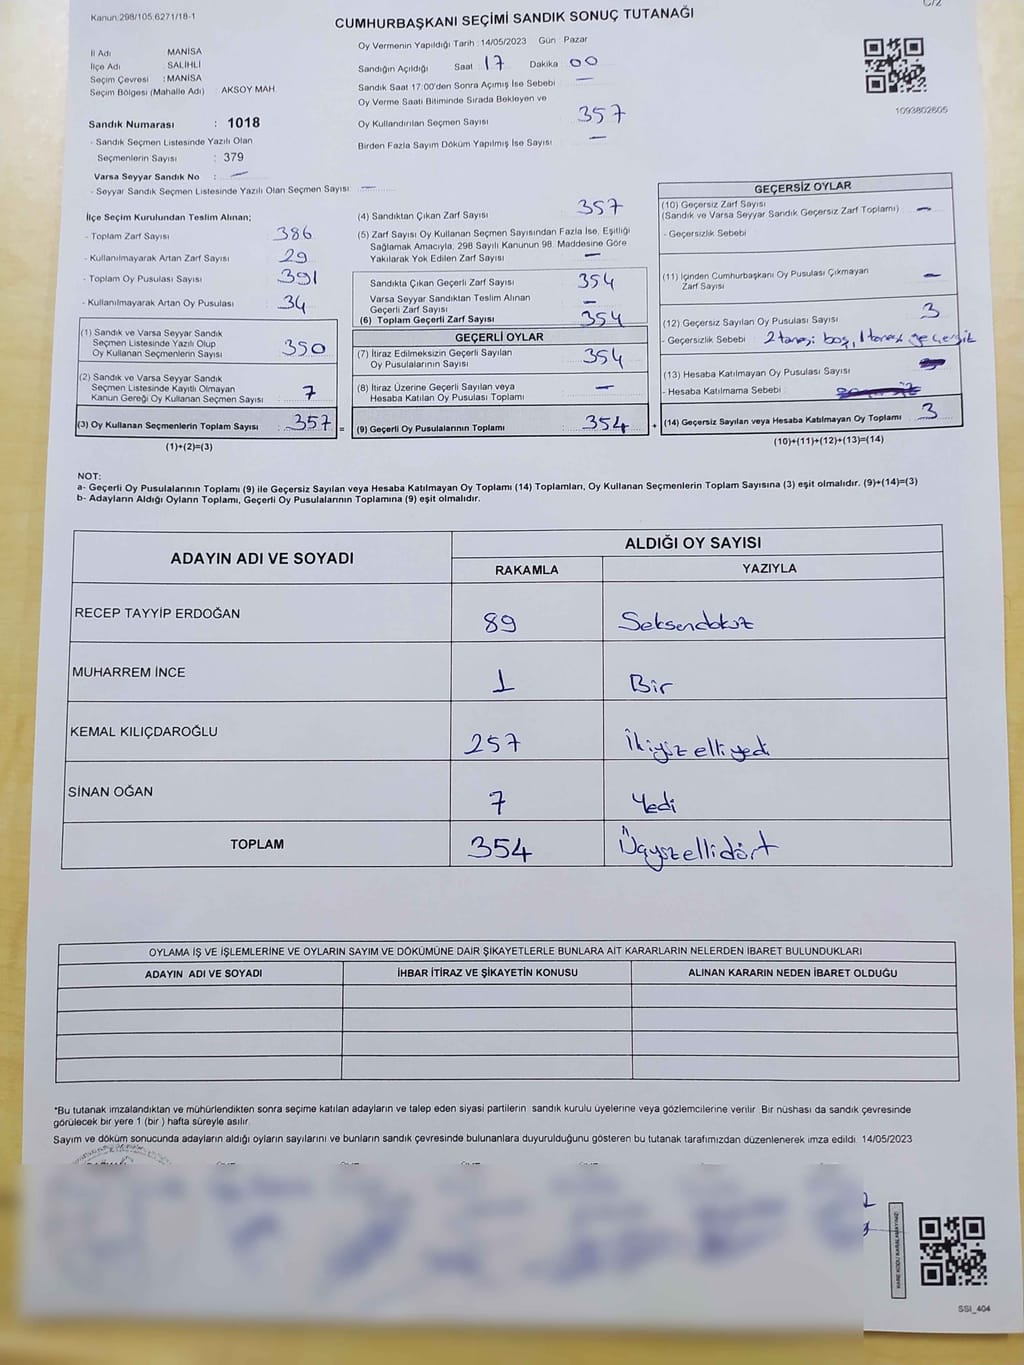 C/2
Kanun 298/105.6271/18-1
CUMHURBAŞKANI SEÇİMİ SANDIK SONUÇ TUTANAĞI
İl Adı MANİSA
İlçe Adı : SALİHLİ
Seçim Çevresi : MANİSA
Seçim Bölgesi (Mahalle Adı) AKSOY MAH.
Sandık Numarası : 1018
- Sandık Seçmen Listesinde Yazılı Olan
Seçmenlerin Sayısı : 379
Varsa Seyyar Sandık No : —
- Seyyar Sandık Seçmen Listesinde Yazılı Olan Seçmen Sayısı: —
Oy Vermenin Yapıldığı Tarih : 14/05/2023 Gün : Pazar
Sandığın Açıldığı Saat 17 Dakika 00
Sandık Saat 17.00'den Sonra Açımış İse Sebebi —
Oy Verme Saati Bitiminde Sırada Bekleyen ve
Oy Kullandırılan Seçmen Sayısı 357
Birden Fazla Sayım Döküm Yapılmış İse Sayısı —
1093802605
İlçe Seçim Kurulundan Teslim Alınan;
- Toplam Zarf Sayısı 386
- Kullanılmayarak Artan Zarf Sayısı 29
- Toplam Oy Pusulası Sayısı 391
- Kullanılmayarak Artan Oy Pusulası 34
(1) Sandık ve Varsa Seyyar Sandık
Seçmen Listesinde Yazılı Olup
Oy Kullanan Seçmenlerin Sayısı 350
(2) Sandık ve Varsa Seyyar Sandık
Seçmen Listesinde Kayıtlı Olmayan
Kanun Gereği Oy Kullanan Seçmen Sayısı 7
(3) Oy Kullanan Seçmenlerin Toplam Sayısı 357 =
(1)+(2)=(3)
(4) Sandıktan Çıkan Zarf Sayısı 357
(5) Zarf Sayısı Oy Kullanan Seçmen Sayısından Fazla İse, Eşitliği
Sağlamak Amacıyla, 298 Sayılı Kanunun 98. Maddesine Göre
Yakılarak Yok Edilen Zarf Sayısı —
Sandıkta Çıkan Geçerli Zarf Sayısı 354
Varsa Seyyar Sandıktan Teslim Alınan
Geçerli Zarf Sayısı —
(6) Toplam Geçerli Zarf Sayısı 354
GEÇERLİ OYLAR
(7) İtiraz Edilmeksizin Geçerli Sayılan
Oy Pusulalarının Sayısı 354
(8) İtiraz Üzerine Geçerli Sayılan veya
Hesaba Katılan Oy Pusulası Toplamı —
(9) Geçerli Oy Pusulalarının Toplamı : 354 +
GEÇERSİZ OYLAR
(10) Geçersiz Zarf Sayısı
(Sandık ve Varsa Seyyar Sandık Geçersiz Zarf Toplamı) —
- Geçersizlik Sebebi
(11) İçinden Cumhurbaşkanı Oy Pusulası Çıkmayan
Zarf Sayısı —
(12) Geçersiz Sayılan Oy Pusulası Sayısı 3
- Geçersizlik Sebebi : 2 tanesi boş, 1 tanesi geçersiz
(13) Hesaba Katılmayan Oy Pusulası Sayısı
- Hesaba Katılmama Sebebi :
(14) Geçersiz Sayılan veya Hesaba Katılmayan Oy Toplamı 3
(10)+(11)+(12)+(13)=(14)
NOT:
a- Geçerli Oy Pusulalarının Toplamı (9) ile Geçersiz Sayılan veya Hesaba Katılmayan Oy Toplamı (14) Toplamları, Oy Kullanan Seçmenlerin Toplam Sayısına (3) eşit olmalıdır. (9)+(14)=(3)
b- Adayların Aldığı Oyların Toplamı, Geçerli Oy Pusulalarının Toplamına (9) eşit olmalıdır.
ADAYIN ADI VE SOYADI ALDIĞI OY SAYISI
RAKAMLA YAZIYLA
RECEP TAYYİP ERDOĞAN 89 Seksendokuz
MUHARREM İNCE 1 Bir
KEMAL KILIÇDAROĞLU 257 İkiyüzelliyedi
SİNAN OĞAN 7 Yedi
TOPLAM 354 Üçyüzellidört
OYLAMA İŞ VE İŞLEMLERİNE VE OYLARIN SAYIM VE DÖKÜMÜNE DAİR ŞİKAYETLERLE BUNLARA AİT KARARLARIN NELERDEN İBARET BULUNDUKLARI
ADAYIN ADI VE SOYADI İHBAR İTİRAZ VE ŞİKAYETİN KONUSU ALINAN KARARIN NEDEN İBARET OLDUĞU
*Bu tutanak imzalandıktan ve mühürlendikten sonra seçime katılan adayların ve talep eden siyasi partilerin sandık kurulu üyelerine veya gözlemcilerine verilir. Bir nüshası da sandık çevresinde
görülecek bir yere 1 (bir ) hafta süreyle asılır.
Sayım ve döküm sonucunda adayların aldığı oyların sayılarını ve bunların sandık çevresinde bulunanlara duyurulduğunu gösteren bu tutanak tarafımızdan düzenlenerek imza edildi. 14/05/2023
SSI_404